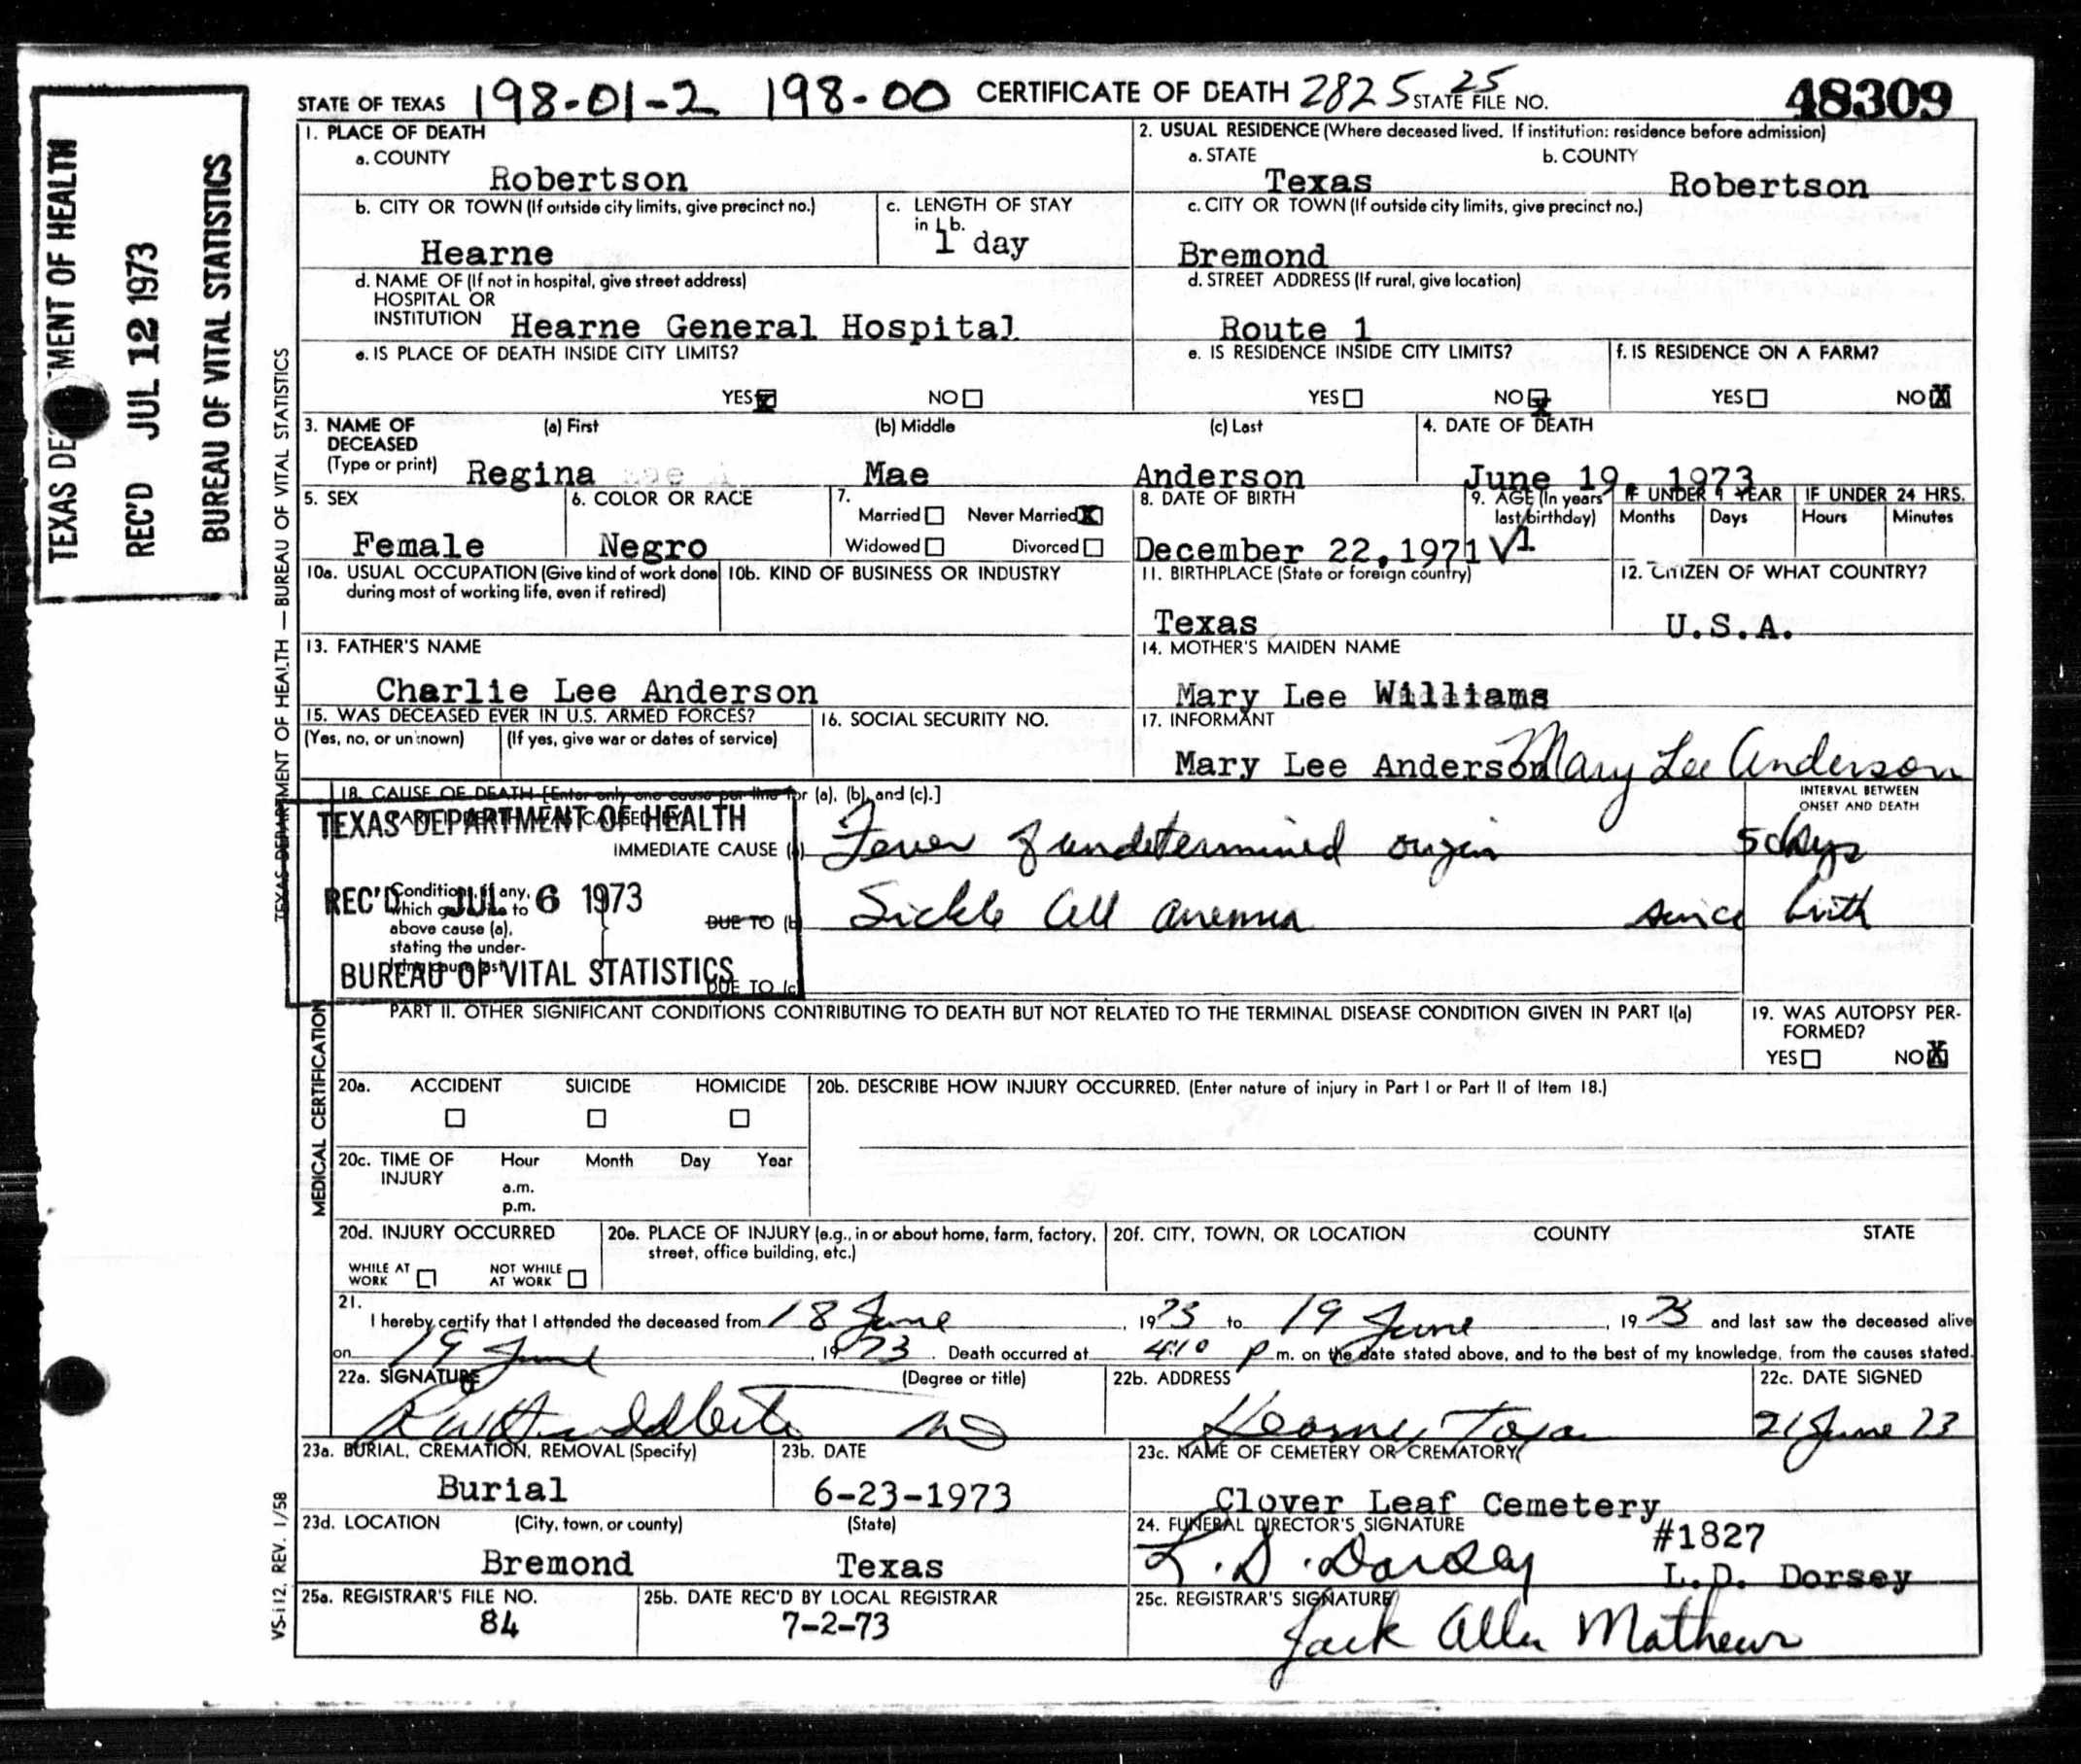 TEXAS DE MENT OF HEALTH
REC'D JUL 12 1973
BUREAU OF VITAL STATISTICS
TEXAS DEPARTMENT OF HEALTH — BUREAU OF VITAL STATISTICS
STATE OF TEXAS 198-01-2 198-00 CERTIFICATE OF DEATH 2825 25 STATE FILE NO. 48309
1. PLACE OF DEATH
a. COUNTY
Robertson
2. USUAL RESIDENCE (Where deceased lived. If institution: residence before admission)
a. STATE b. COUNTY
Texas Robertson
b. CITY OR TOWN (If outside city limits, give precinct no.)
Hearne
c. LENGTH OF STAY
in 1b.
1 day
c. CITY OR TOWN (If outside city limits, give precinct no.)
Bremond
d. NAME OF (If not in hospital, give street address)
HOSPITAL OR
INSTITUTION Hearne General Hospital
d. STREET ADDRESS (If rural, give location)
Route 1
e. IS PLACE OF DEATH INSIDE CITY LIMITS?
YES NO
e. IS RESIDENCE INSIDE CITY LIMITS?
YES NO
f. IS RESIDENCE ON A FARM?
YES NO X
3. NAME OF (a) First (b) Middle (c) Last
DECEASED
(Type or print) Regina Mae Anderson
4. DATE OF DEATH
June 19, 1973
5. SEX
Female
6. COLOR OR RACE
Negro
7.
Married Never Married X
Widowed Divorced
8. DATE OF BIRTH
December 22, 1971
9. AGE (In years
last birthday)
1
IF UNDER 1 YEAR
Months Days
IF UNDER 24 HRS.
Hours Minutes
10a. USUAL OCCUPATION (Give kind of work done
during most of working life, even if retired)
10b. KIND OF BUSINESS OR INDUSTRY
11. BIRTHPLACE (State or foreign country)
Texas
12. CITIZEN OF WHAT COUNTRY?
U.S.A.
13. FATHER'S NAME
Charlie Lee Anderson
14. MOTHER'S MAIDEN NAME
Mary Lee Williams
15. WAS DECEASED EVER IN U.S. ARMED FORCES?
(Yes, no, or unknown) (If yes, give war or dates of service)
16. SOCIAL SECURITY NO.
17. INFORMANT
Mary Lee Anderson Mary Lee Anderson
MEDICAL CERTIFICATION
18. CAUSE OF DEATH [Enter only one cause per line for (a), (b), and (c).]
INTERVAL BETWEEN
ONSET AND DEATH
TEXAS DEPARTMENT OF HEALTH
IMMEDIATE CAUSE Fever of undetermined origin 5 days
REC'D JUL 6 1973
Conditions, if any,
which gave rise to
above cause (a),
stating the under-
lying cause last
DUE TO (b Sickle Cell anemia since birth
BUREAU OF VITAL STATISTICS
DUE TO (c
PART II. OTHER SIGNIFICANT CONDITIONS CONTRIBUTING TO DEATH BUT NOT RELATED TO THE TERMINAL DISEASE CONDITION GIVEN IN PART I(a)
19. WAS AUTOPSY PER-
FORMED?
YES NO X
20a. ACCIDENT SUICIDE HOMICIDE
20b. DESCRIBE HOW INJURY OCCURRED. (Enter nature of injury in Part I or Part II of Item 18.)
20c. TIME OF Hour Month Day Year
INJURY
a.m.
p.m.
20d. INJURY OCCURRED
WHILE AT NOT WHILE
WORK AT WORK
20e. PLACE OF INJURY (e.g., in or about home, farm, factory,
street, office building, etc.)
20f. CITY, TOWN, OR LOCATION COUNTY STATE
21.
I hereby certify that I attended the deceased from 18 June, 1973 to 19 June, 1973 and last saw the deceased alive
on 19 June, 1973. Death occurred at 4:10 P m. on the date stated above, and to the best of my knowledge, from the causes stated.
22a. SIGNATURE (Degree or title)
MD
22b. ADDRESS
Hearne, Texas
22c. DATE SIGNED
21 June 73
23a. BURIAL, CREMATION, REMOVAL (Specify)
Burial
23b. DATE
6-23-1973
23c. NAME OF CEMETERY OR CREMATORY
Clover Leaf Cemetery
23d. LOCATION (City, town, or county) (State)
Bremond Texas
24. FUNERAL DIRECTOR'S SIGNATURE
#1827
L. D. Dorsey L.D. Dorsey
25a. REGISTRAR'S FILE NO.
84
25b. DATE REC'D BY LOCAL REGISTRAR
7-2-73
25c. REGISTRAR'S SIGNATURE
Jack Allen Mathews
VS-112, REV. 1/58